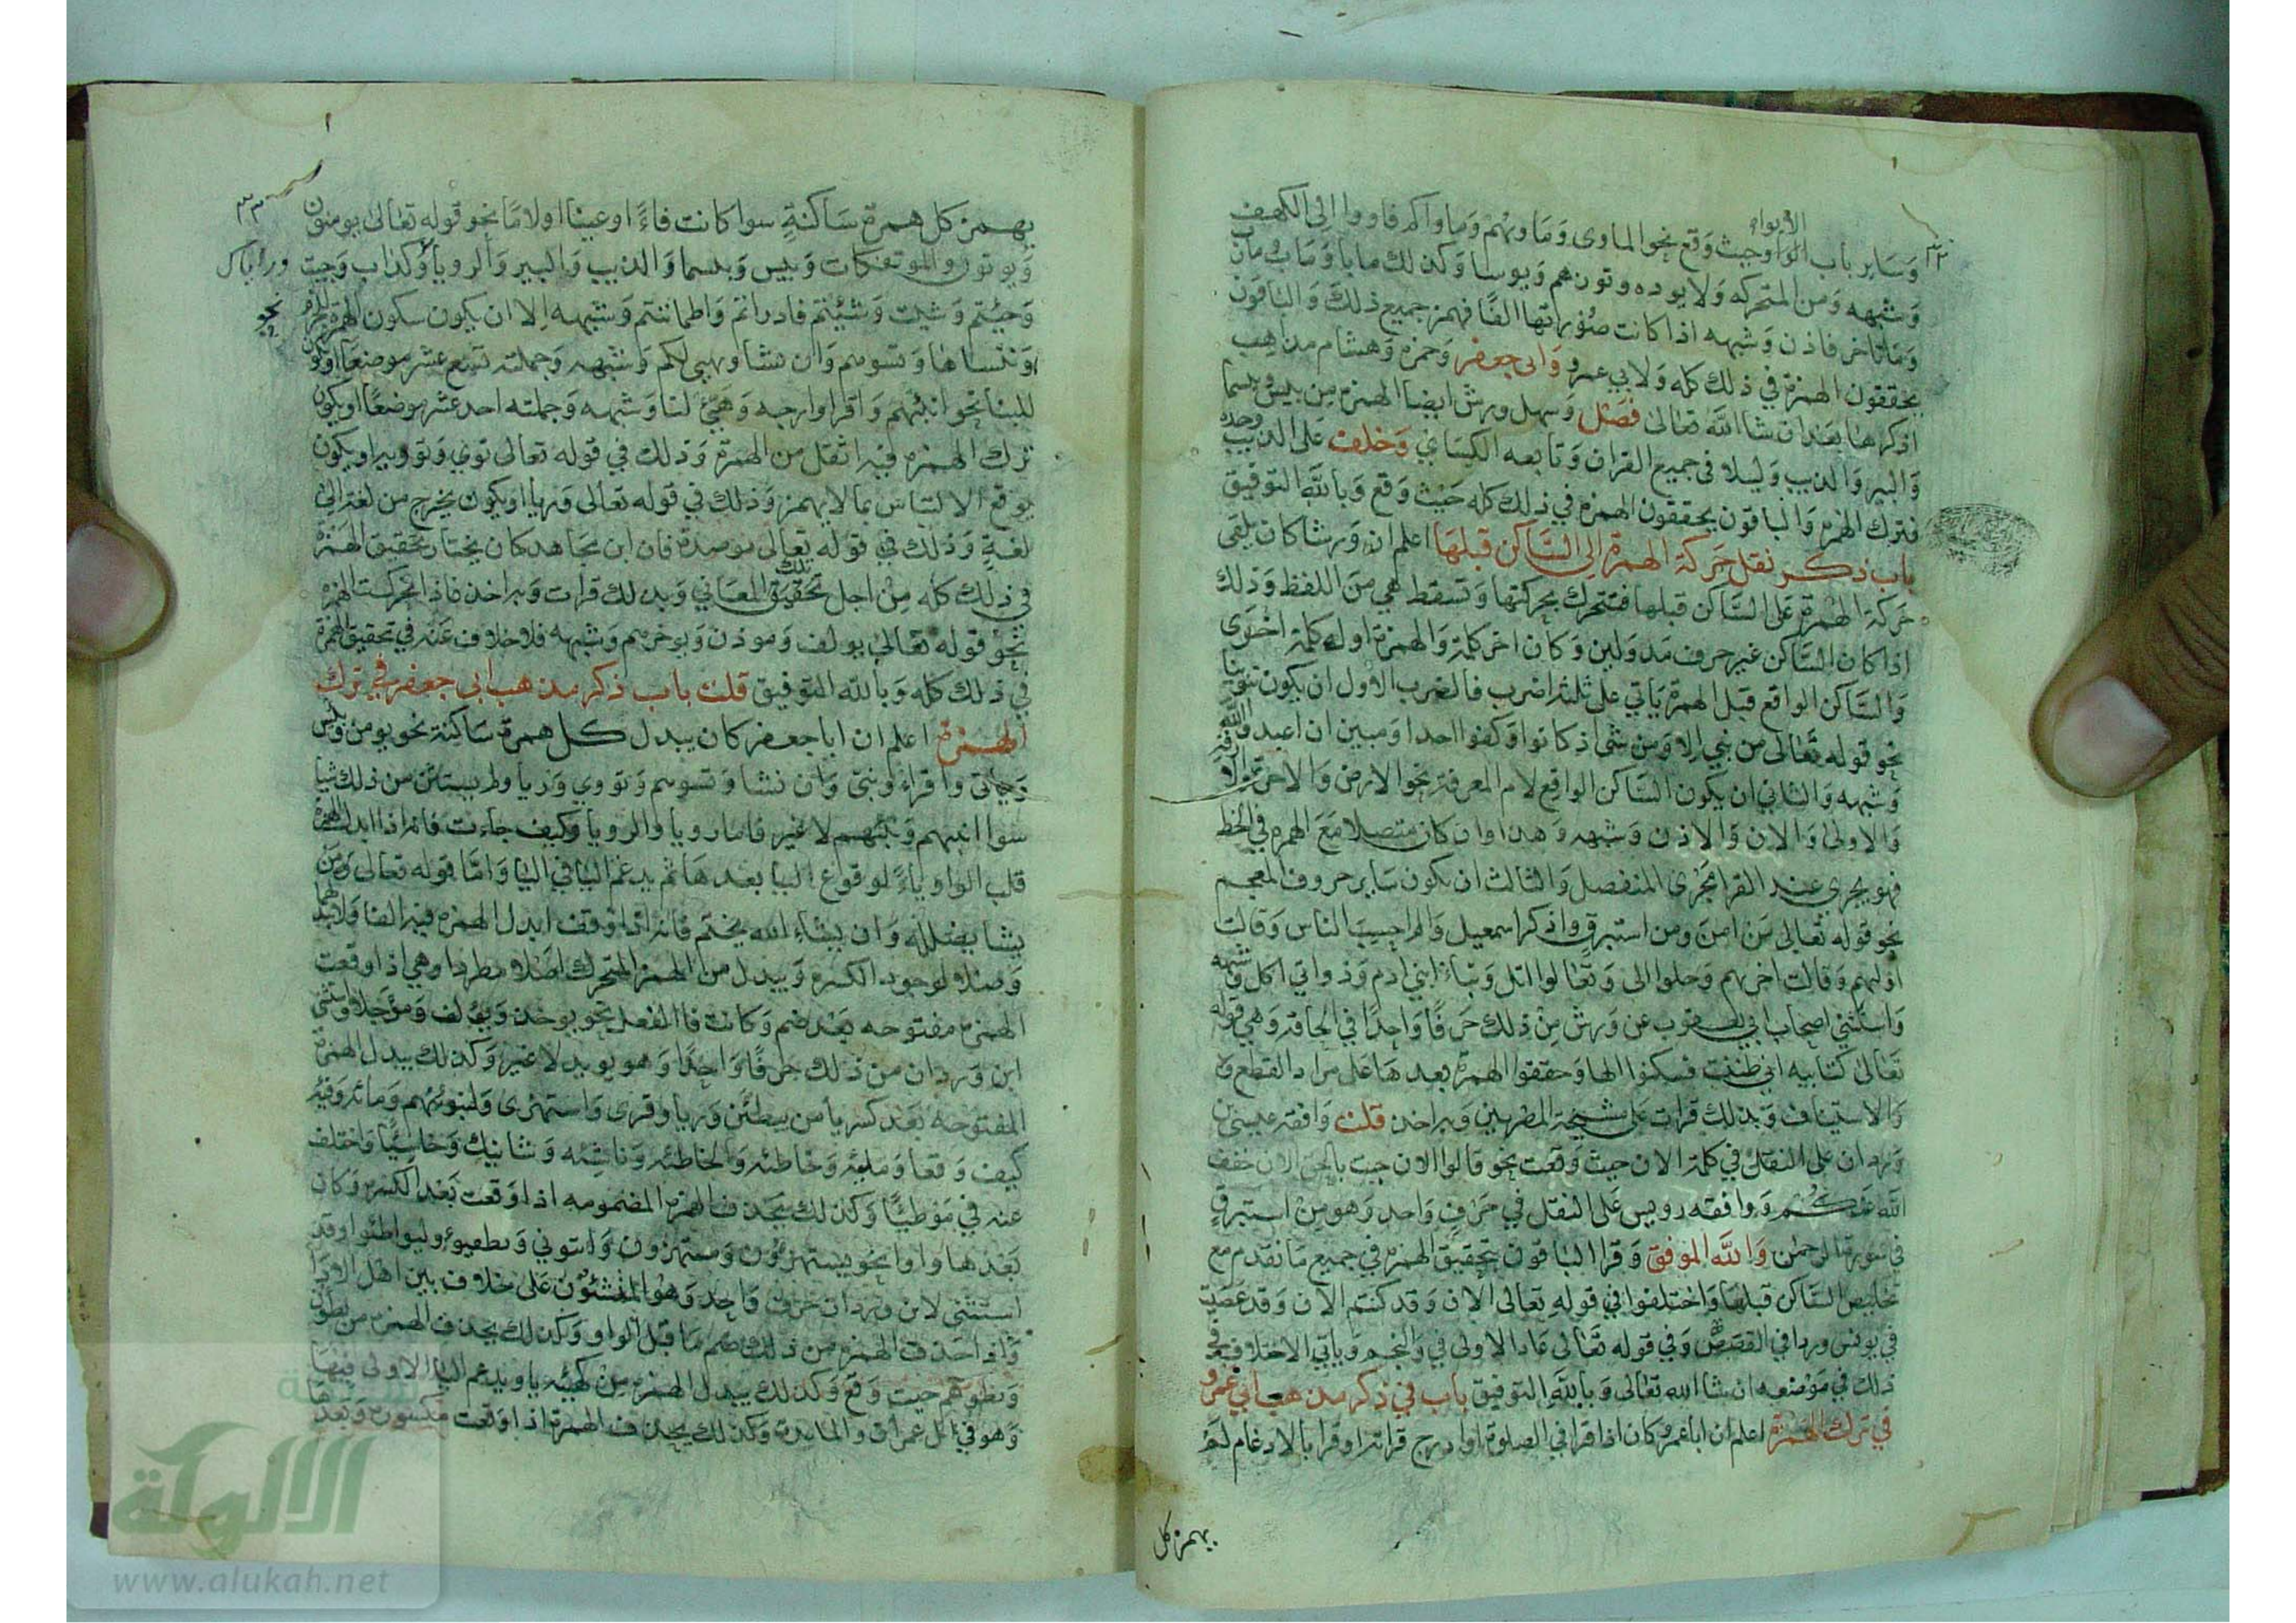 الايواء
وَسَاير باب الواو حيث وَقع نحو الماوى وَمَاويهُم وَماواكم فاووا الى الكهف
وَشبهه وَمن المتحركه وَلا يوده وتوزهم وَيوسا وَكذلك مابا وَمَاب ومان
وَماتاخر فاذن وَشبهه اذا كانت صُورتها الفًا فهمز جميع ذلكَ وَالباقون
يحققون الهمزة في ذلك كله وَلابي عمرو وَابى جعفر وَحمزه وَهشام مذاهب
اذكرها بعَد ان شا الله تعالى فصَل وَسهل ورش ايضا الهمزه من بيس وبيسما
وَالبير وَالذيب وَليلا في جميع القران وَتابعه الكسَاي وَخلف على الذيب وحده
فترك الهمزه وَالباقون يحققون الهمزه في ذلك كله حَيْث وَقع وَباللّه التوفيق
باب ذكر نقل حَركة الهمزة الى السَّاكن قبلهَا اعلم ان وَرشا كان يلقى
حَركة الهمْزة عَلى السَّاكن قبلها فتتحرك بحركتها وَتسقط هي منَ اللفظ وَذلك
اذا كان السَّاكن غير حرف مَد وَلين وَكان اخر كلمة وَالهمزة اول كلمة اخرَى
وَالسَّاكن الواقع قبل الهمزة يَاتي على ثلثة اضرب فالضرب الاول ان يكون تنوينا
نحو قوله تعَالى من نبي الا وَمن شي اذ كانوا وَكفوا احدا وَمبين ان اعبدوا الله
وَشبهه وَالثاني ان يكون السَّاكن الواقع لام المعرفة نحو الارض وَالاخرة والازفة
وَالاولى وَالان وَالاذن وَشبهه وَهذا وان كان متصلا مَعَ الهمزه في الخط
فهو يجري عند القرا مجْرى المنفصل وَالثالث ان يكون سَاير حروف المعجم
نحو قوله تعَالى مَن امنَ ومن استبرق واذكر اسمعيل وَالم احسِبَ الناس وَقالت
اولهم وَقالت اخريهم وَخلوا الى وَتعَالوا اتل وَنبَا ابني ادم وَذواتي اكل وشبهه
وَاستثني اصحاب ابي يعقوب عن وَرش مِنْ ذلك حَرفًا وَاحدًا في الحاقة وَهي قوله
تعَالى كتابيه اني ظننت فسكنوا الها وَحققوا الهمزة بعدهَا على مراد القطع
وَالاستيناف وَبذلك قرات عَلى مشيخة المصريين وَبه اخذ قلت وَافقه عيسى بن
وَردان على النقل في كلمة الان حيث وَقعت نحو قالوا الان جيت بالحق الان خفف
الله عنكم وَوافقه رويس عَلى النقل في حَرفٍ وَاحد وَهو مِنْ استبرق
في سورة الرحمن وَاللّه الموفق وَقرا الباقون بتحقيق الهمزه في جميع مَا تقدم مع
تخليص السَّاكن قبلهَا وَاختلفوا في قوله تعَالى الان وَقد كنتم الان وَقد عَصَيت
في يونس وردا في القصَص وَفي قوله تعَالى عَادا الاولى في وَالنجم وَياتي الاختلاف في
ذلك في مَوْضعه ان شا اللّه تعالى وَباللّه التوفيق باب في ذكر مذهب ابي عَمْرو
في ترك الهمزة اعلم ان ابا عمرو كان اذا قرا في الصلوة او ادرج قراته او قرا بالادغام لم
يهمز كل
٣٣
يهمز كل همزة سَاكنةٍ سوا كانت فاءً او عينا او لامًا نحو قوله تعَالى يومنون
وَيوتون والموتفكات وَبيس وَبيسما وَالذيب وَالبير وَالرويا وَكداب وَجيت
وَجيْتم وَشيت وَشيْتم فادراتم وَاطماننتم وَشبهه الا ان يكون سكون الهمزة للجزم نحو
وَننسَاها وَتسوهم وَان نشا ويهيى لكم وَشبهه وَجملته تسَع عشر موضعًا او يكون
للبنا نحو انبئهم وَاقرا وارجه وَهيئ لنا وَشبهه وَجملته احد عشر موضعًا او يكون
ترك الهمزه فيه اثقل من الهمزة وَذلك في قوله تعالى تووي وَتوويه او يكون
يوقع الالتباس بما لا يهمز وَذلك في قوله تعالى وَريا او يكون يخرج من لغة الى
لغةٍ وَذلك في قوله تعَالى موصدة فان ابن مجَاهد كان يختار تحقيق الهمَزة
في ذلك كله مِنْ اجل تلك المعَاني وَبذلك قرات وَبه اخذ فاذا تحركت الهمزه
نحو قوله تعَالى يولف وَموذن وَيوخرهم وَشبهه فلا خلاف عَنه في تحقيق الهمزة
في ذلك كله وَباللّه التوفيق قلت باب ذكر مذهب ابى جعفر في ترك
الهمزة اعلم ان ابا جعفر كان يبدل كل همزة سَاكِنة نحو يومن وَبيس
وَياتي واقراء ونبى وَان نشا وَتسوهم وَتووي وَريا ولم يستثن من ذلك شيا
سوا انبيهم وَنبئهم لا غير فاما رويا والرويا وَكيف جاءت فانه اذا ابدل الهمزة
قلب الواو ياءً لوقوع اليا بعدهَا ثم يدغم اليا في اليا وَامّا قوله تعالى وَمَن
يشا يضلله وَان يشاء الله يختم فانه اذا وَقف ابدل الهمزه فيه الفا وَلا يبدلها
وَصلا لوجود الكسره وَيبدل من الهمز المتحرك اصَلا مطردا وهي اذا وقعت
الهمزه مفتوحه بعَد ضم وَكانت فا الفعل نحو يوخذ وَيولف وَموَجلا واستثنى
ابن وَردان من ذلك حرفًا وَاحِدًا وَهو يويد لا غير وَكذلك يبدل الهمزة
المفتوحه بعَد كسر يا من ليبطئن وَريا وقرى وَاستهزى وَلنبوئنهم وَمائه وَفئه
كيف وَقعا وَملئه وَخاطئه وَالخاطئه وَناشئه وَشانيك وَخاسئًا وَاختلف
عنه في مَوْطئًا وَكذلك يحَذف الهمزه المضمومه اذا وَقعت بَعْد الكسره وَكان
بَعْدها واوا نحو يستهزؤن وَمستهزون وَانبوني وَيطفيوا وليواطئوا وقد
استثنى لابن وردان حرفٌ وَاحِد وَهو المنشئون على خلاف بين اهل الادا
وَاذا حَذف الهمزه من ذلك ضم مَا قبل الواو وَكذلك يحذف الهمزه من يطون
وَيطوهم حيث وَقع وَكذلك يبدل الهمزه مِنْ كهيْئه يا ويدغم اليا الاولى فيهَا
وَهو في ال عمران والمائدة وَكذلك يحذف الهمزة اذا وَقعت مكسورة وَبعدهَا
الألوكة
www.alukah.net